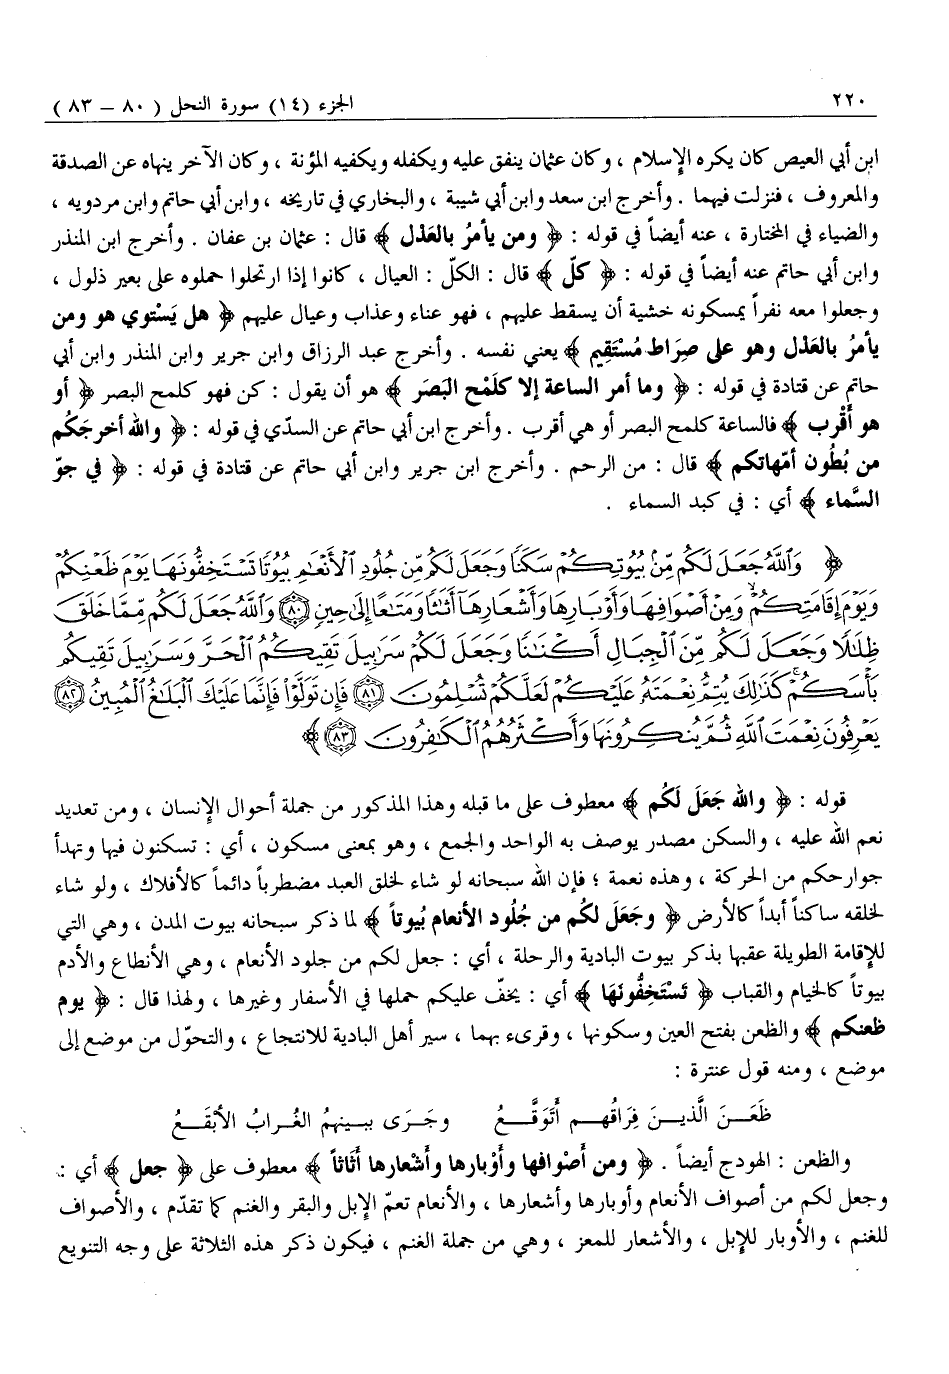 ٢٢٠ الجزء (١٤) سورة النحل ( ٨٠ – ٨٣ )
ابن أبي العيص كان يكره الإسلام ، وكان عثمان ينفق عليه ويكفله ويكفيه المؤنة ، وكان الآخر ينهاه عن الصدقة
والمعروف ، فنزلت فيهما . وأخرج ابن سعد وابن أبي شيبة ، والبخاري في تاريخه ، وابن أبي حاتم وابن مردويه ،
والضياء في المختارة ، عنه أيضاً في قوله : ﴿ ومن يأمرُ بالعَدْل ﴾ قال : عثمان بن عفان . وأخرج ابن المنذر
وابن أبي حاتم عنه أيضاً في قوله : ﴿ كلّ ﴾ قال : الكلّ : العيال ، كانوا إذا ارتحلوا حملوه على بعير ذلول ،
وجعلوا معه نفراً يمسكونه خشية أن يسقط عليهم ، فهو عناء وعذاب وعيال عليهم ﴿ هل يَسْتوي هو ومن
يأمرُ بالعَدْل وهو على صِرَاط مُسْتَقِيم ﴾ يعني نفسه . وأخرج عبد الرزاق وابن جرير وابن المنذر وابن أبي
حاتم عن قتادة في قوله : ﴿ وما أمر الساعة إلا كلَمْح البَصَر ﴾ هو أن يقول : كن فهو كلمح البصر ﴿ أو
هو أَقْرب ﴾ فالساعة كلمح البصر أو هي أقرب . وأخرج ابن أبي حاتم عن السدّي في قوله : ﴿ والله أخرجَكُم
من بُطُون أمّهاتكم ﴾ قال : من الرحم . وأخرج ابن جرير وابن أبي حاتم عن قتادة في قوله : ﴿ في جوّ
السَّماء ﴾ أي : في كبد السماء .
﴿ وَٱللَّهُ جَعَلَ لَكُم مِّنۢ بُيُوتِكُمْ سَكَنًا وَجَعَلَ لَكُم مِّن جُلُودِ ٱلْأَنْعَٰمِ بُيُوتًا تَسْتَخِفُّونَهَا يَوْمَ ظَعْنِكُمْ
وَيَوْمَ إِقَامَتِكُمْ ۙ وَمِنْ أَصْوَافِهَا وَأَوْبَارِهَا وَأَشْعَارِهَآ أَثَٰثًا وَمَتَٰعًا إِلَىٰ حِينٍ ﴿٨٠﴾ وَٱللَّهُ جَعَلَ لَكُم مِّمَّا خَلَقَ
ظِلَٰلًا وَجَعَلَ لَكُم مِّنَ ٱلْجِبَالِ أَكْنَٰنًا وَجَعَلَ لَكُمْ سَرَٰبِيلَ تَقِيكُمُ ٱلْحَرَّ وَسَرَٰبِيلَ تَقِيكُم
بَأْسَكُمْ ۚ كَذَٰلِكَ يُتِمُّ نِعْمَتَهُۥ عَلَيْكُمْ لَعَلَّكُمْ تُسْلِمُونَ ﴿٨١﴾ فَإِن تَوَلَّوْا۟ فَإِنَّمَا عَلَيْكَ ٱلْبَلَٰغُ ٱلْمُبِينُ ﴿٨٢﴾
يَعْرِفُونَ نِعْمَتَ ٱللَّهِ ثُمَّ يُنكِرُونَهَا وَأَكْثَرُهُمُ ٱلْكَٰفِرُونَ ﴿٨٣﴾ ﴾
قوله : ﴿ والله جَعَل لَكُم ﴾ معطوف على ما قبله وهذا المذكور من جملة أحوال الإنسان ، ومن تعديد
نعم الله عليه ، والسكن مصدر يوصف به الواحد والجمع ، وهو بمعنى مسكون ، أي : تسكنون فيها وتهدأ
جوارحكم من الحركة ، وهذه نعمة ؛ فإن الله سبحانه لو شاء لخلق العبد مضطرباً دائماً كالأفلاك ، ولو شاء
لخلقه ساكناً أبداً كالأرض ﴿ وجَعَل لكُم من جُلُود الأنعام بُيوتاً ﴾ لما ذكر سبحانه بيوت المدن ، وهي التي
للإقامة الطويلة عقبها بذكر بيوت البادية والرحلة ، أي : جعل لكم من جلود الأنعام ، وهي الأنطاع والأدم
بيوتاً كالخيام والقباب ﴿ تَسْتَخِفُّونَهَا ﴾ أي : يخفّ عليكم حملها في الأسفار وغيرها ، ولهذا قال : ﴿ يوم
ظعنكم ﴾ والظعن بفتح العين وسكونها ، وقرىء بهما ، سير أهل البادية للانتجاع ، والتحوّل من موضع إلى
موضع ، ومنه قول عنترة :
ظَعَـنَ الَّذيـنَ فِرَاقُهـم أَتَوَقَّـعُ وجَـرَى ببـينهمُ الغُـرابُ الأبْقَـعُ
والظعن : الهودج أيضاً . ﴿ ومن أصْوافها وأوْبارها وأشْعارها أثَاثاً ﴾ معطوف على ﴿ جعل ﴾ أي :
وجعل لكم من أصواف الأنعام وأوبارها وأشعارها ، والأنعام تعمّ الإبل والبقر والغنم كما تقدّم ، والأصواف
للغنم ، والأوبار للإبل ، والأشعار للمعز ، وهي من جملة الغنم ، فيكون ذكر هذه الثلاثة على وجه التنويع